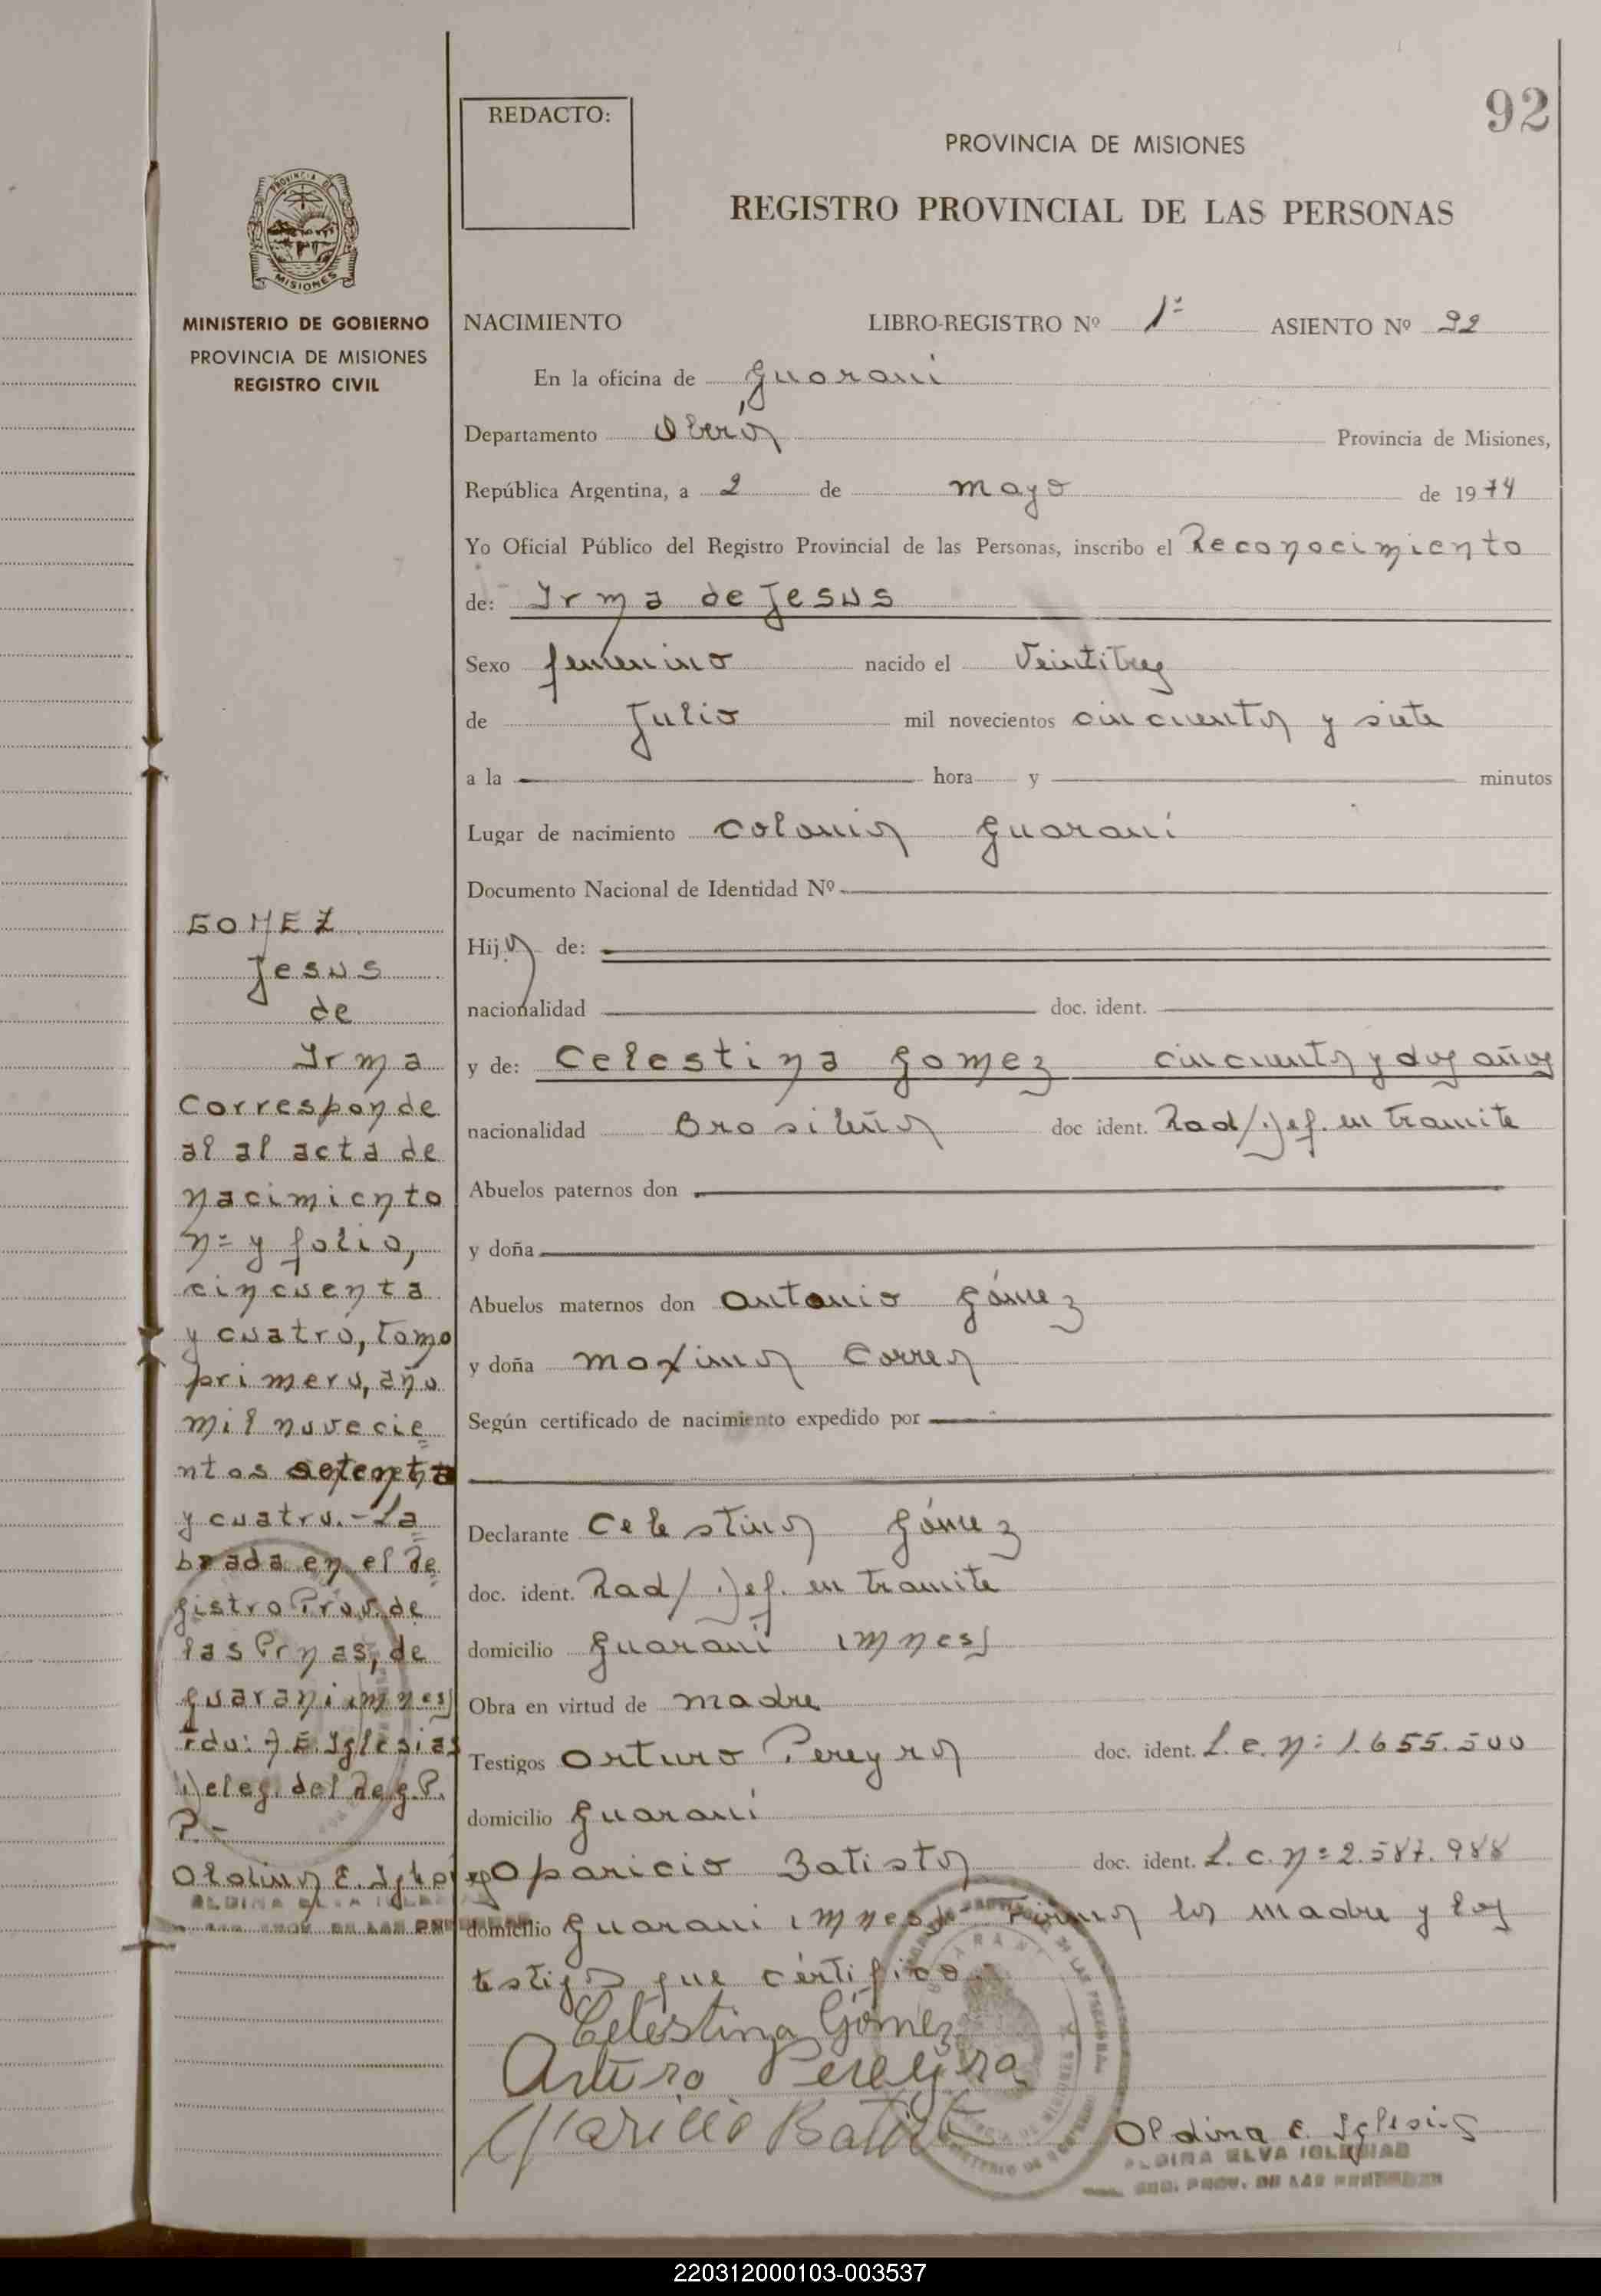 92
REDACTO:
PROVINCIA DE MISIONES
REGISTRO PROVINCIAL DE LAS PERSONAS
PROVINCIA DE
MISIONES
MINISTERIO DE GOBIERNO
PROVINCIA DE MISIONES
REGISTRO CIVIL
NACIMIENTO LIBRO-REGISTRO Nº 1º ASIENTO Nº 92
En la oficina de Guarani
Departamento Oberá Provincia de Misiones,
República Argentina, a 2 de mayo de 1974
Yo Oficial Público del Registro Provincial de las Personas, inscribo el Reconocimiento
de: Irma de Jesus
Sexo femenino nacido el Veintitres
de Julio mil novecientos cincuenta y siete
a la hora y minutos
Lugar de nacimiento Colonia Guaraní
Documento Nacional de Identidad Nº
Hija de:
nacionalidad doc. ident.
y de: Celestina Gomez cincuenta y dos años
nacionalidad Brasileña doc ident. Rad/Def. en tramite
Abuelos paternos don
y doña
Abuelos maternos don Antonio Gómez
y doña Maxima Correa
Según certificado de nacimiento expedido por
Declarante Celestina Gómez
doc. ident. Rad/Def. en tramite
domicilio Guarani Mnes
Obra en virtud de madre
Testigos Arturo Pereyra doc. ident. L.e. nº 1.655.500
domicilio Guaraní
Aparicio Batista doc. ident. L.c. nº 2.587.988
domicilio Guarani Mnes. Firma la madre y los
testigos que certifico.
Celestina Gómez
Arturo Pereyra
Batista
Aldina E. Iglesias
ALDINA ELVA IGLESIAS
REG. PROV. DE LAS PERSONAS
GOMEZ
Jesus
de
Irma
Corresponde
al al acta de
nacimiento
nº y folio,
cincuenta
y cuatro, tomo
primero, año
mil novecie=
ntos setenta
y cuatro.-La=
brada en el Re=
gistro Prov. de
las Prnas, de
Guarani Mnes
Fdo: A E. Iglesias
Deleg. del Reg. P.
P.-
Aldina E. Iglesias
ALDINA ELVA IGLESIAS
REG. PROV. DE LAS PERSONAS
220312000103-003537